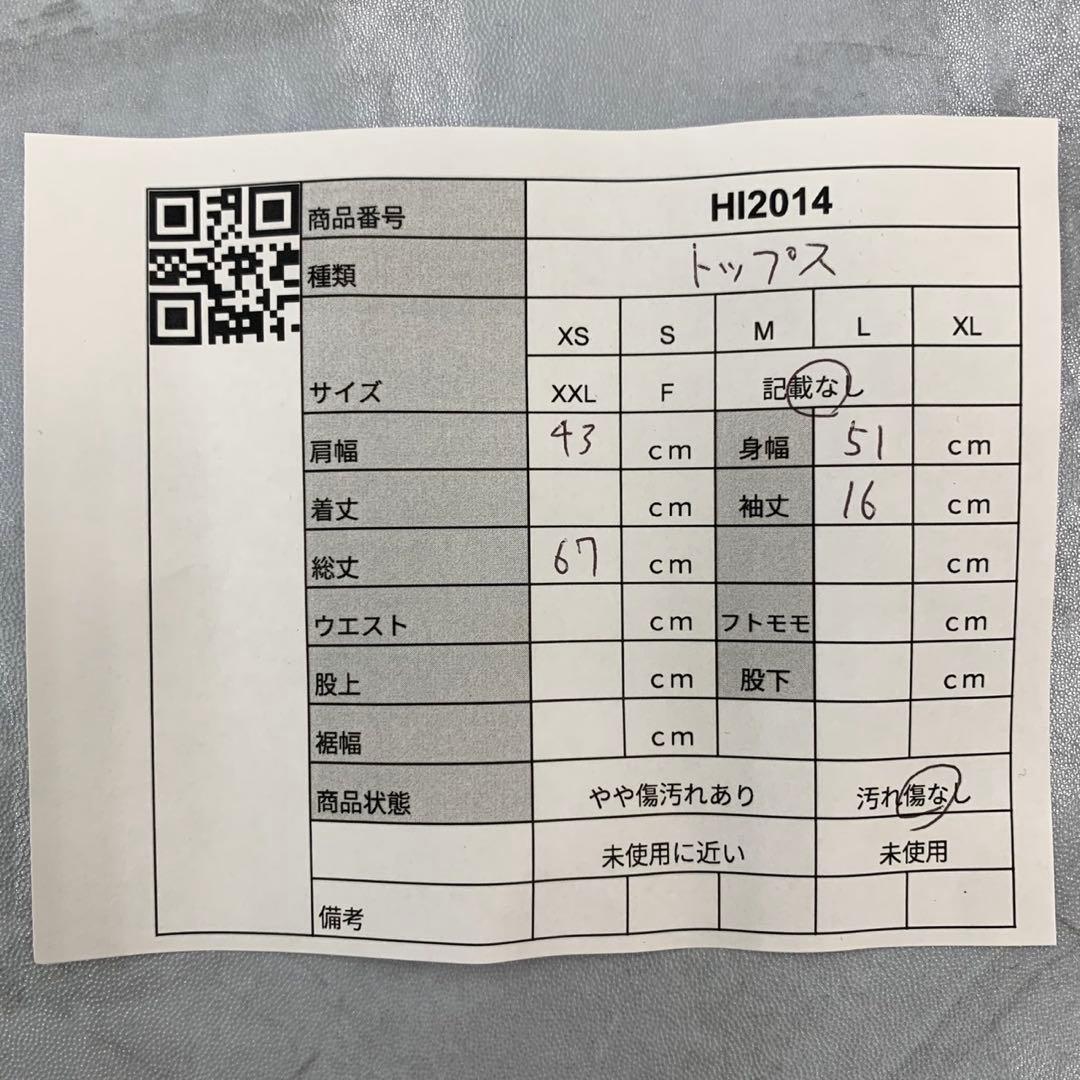 商品番号 HI2014
種類 トップス
XS S M L XL
サイズ XXL F 記載なし
肩幅 43 cm 身幅 51 cm
着丈 cm 袖丈 16 cm
総丈 67 cm cm
ウエスト cm フトモモ cm
股上 cm 股下 cm
裾幅 cm
商品状態 やや傷汚れあり 汚れ傷なし
未使用に近い 未使用
備考